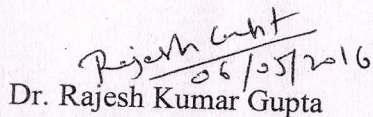 Rajesh Gupt
06/05/2016
Dr. Rajesh Kumar Gupta